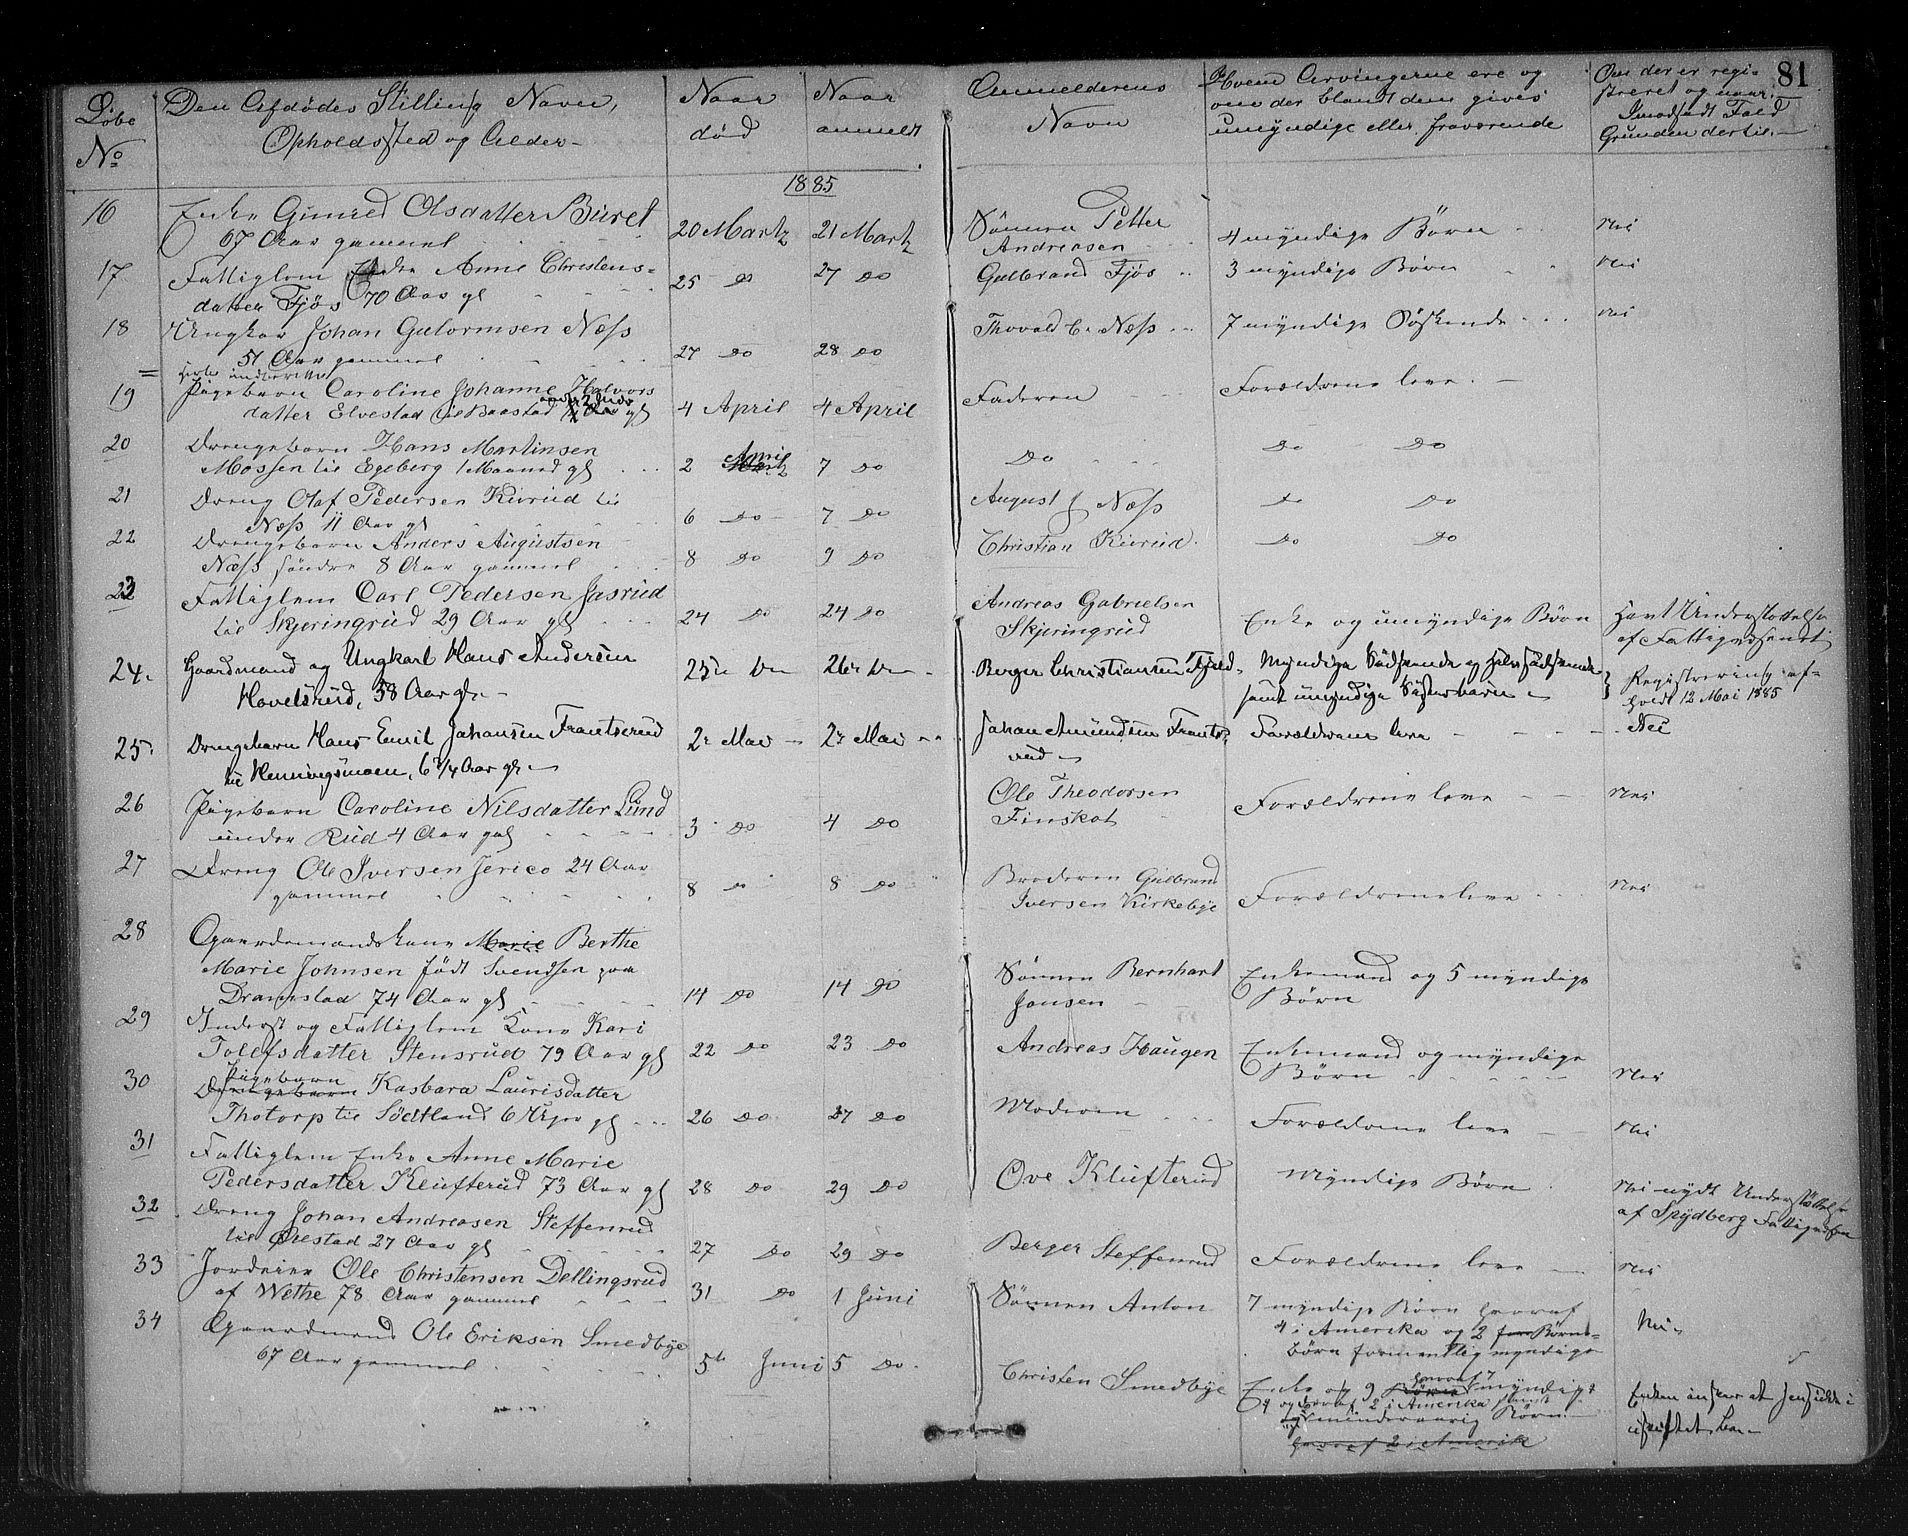 81
Løbe
No
Den Afdødes Stilling Navn,
Opholdssted og Alder
Naar
død
Naar
anmeldt
Anmelderens
Navn
Hvem Arvingerne ere og
om der blandt dem gives
umyndige eller fraværende
Om der er regi-
streret og naar.
I modsatt Fald
Grunden dertil.
1885
16 Enke Gunred Olsdatter Buret
67 Aar gammel 20 Martz 21 Martz Sønnen Petter
Andreasen 4 myndige Børn Nei
17 Fattiglem Enke Anne Christens-
datter Fjøs 70 Aar gl 25 Do 27 Do Gulbrand Fjøs 3 myndige Børn Nei
18 Ungkar Johan Gulormsen Næss
51 Aar gammel 27 Do 28 Do Thovald C. Næss 7 myndige Søskende Nei
19 Pigebarn Caroline Johanne Halvors
datter Elvestad til Baastad Aar gl 4 April 4 April Faderen Forældrene leve
20 Drengebarn Hans Martinsen
Mossen til Egeberg 1 Maaned gl 2 April 7 Do Do Do Do
21 Dreng Olaf Pedersen Kurud til
Næss 11 Aar gl 6 Do 7 Do August J Næss Do Do
22 Drengebarn Anders Augustsen
Næss søndre 8 Aar gammel 8 Do 9 Do Christian Kurud Do Do
23 Fattiglem Carl Pedersen Jasrud
til Skjeringrud 29 Aar gl 24 Do 24 Do Andreas Gabrielsen
Skjeringrud Enke og umyndige Børn Havt Understøttelse
af Fattigvæsenet
24. Gaardmand og Ungkarl Hans Andersen
Hovelsrud, 58 Aar gl. 25de Do 26de Do Berger Christiansen Fjeld Myndige Sødskende og Halvsødskende
samt umyndige Søsterbarn Registrering af-
holdt 12 Mai 1885
25. Drengebarn Hans Emil Johansen Frantserud
til Henningsmoen, 6 3/4 Aar gl. 2. Mai 2. Mai Johan Amundsen Frants-
rud Forældrene leve Nei
26 Pigebarn Caroline Nilsdatter Lund
under Rud 4 Aar gl 3 Do 4 Do Ole Theodorsen
Finskot Forældrene leve Nei
27 Dreng Ole Iversen Jerico 24 Aar
gammel 8 Do 8 Do Broderen Gulbrand
Iversen Kirkebye Forældrene leve Nei
28 Gaardmandskone Marie Berthe
Marie Johnsen født Svendsen paa
Dramstad 74 Aar gl 14 Do 14 Do Sønnen Bernhart
Jonsen Enkemand og 5 myndige
Børn
29 Inderst og Fattiglem Kone Kari
Tollefsdatter Stensrud 79 Aar gl 22 Do 23 Do Andreas Haugen Enkemand og myndige
Børn Nei
30 Pigebarn
Drengebarn Kasbara Laurisdatter
Thotorp til Sødtland 6 Uger gl 26 Do 27 Do Moderen Forældrene leve Nei
31 Fattiglem Enke Anne Marie
Pedersdatter Klufterud 73 Aar gl 28 Do 29 Do Ove Klufterud Myndige Børn Nei nydt Understøttelse
af Spydberg Fattigvæsen
32 Dreng Johan Andreasen Steffenrud
til Ørestad 27 Aar gl 27 Do 29 Do Berger Steffenrud Forældrene leve Nei
33 Jordeier Ole Christensen Dellingsrud
af Wethe 78 Aar gammel 31 Do 1 Juni Sønnen Anton 7 myndige Børn hvoraf
4 i Amerika og 2 Børne-
børn formentlig myndige Nei
34 Gaardmand Ole Eriksen Smedbye
67 Aar gammel 5te Juni 5 Do Christen Smedbye Enke og 9 Børn hvoraf 7 myndige
og hvoraf 2 i Amerika
mindreaarig Børn
hvoraf 2 i Amerik
Enken ønsker at hensidde i
uskiftet Bo